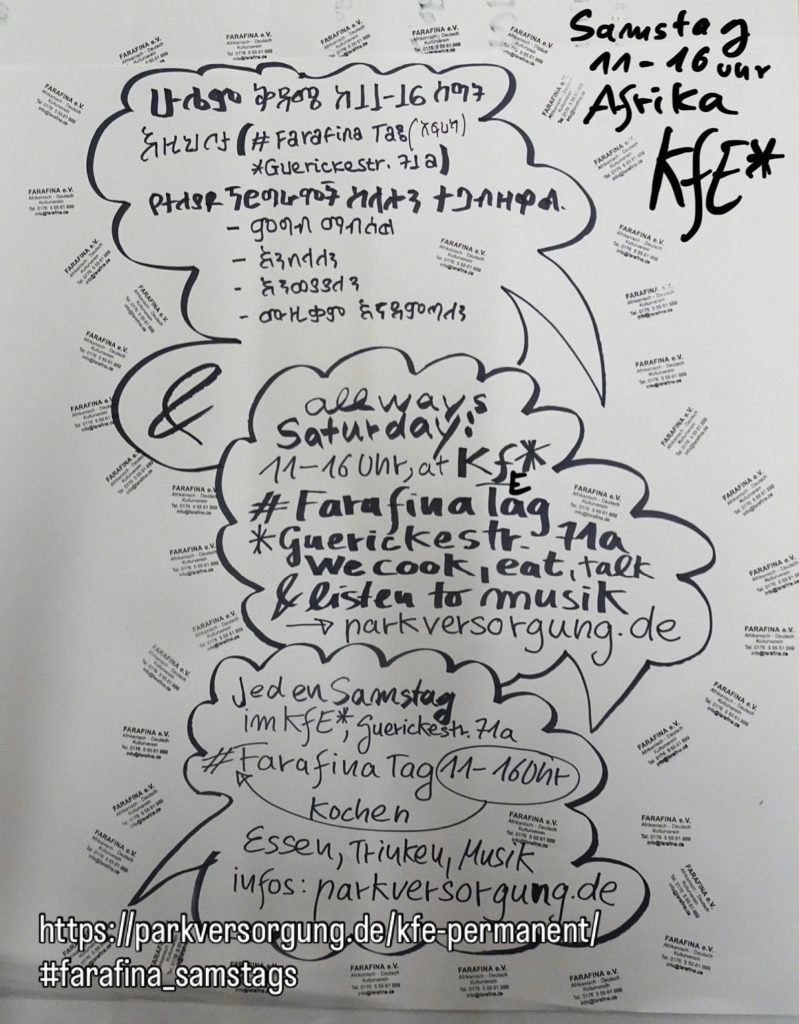 Samstag
11-16 Uhr
Afrika
KfE*
ሁሌም ቅዳሜ ከ11-16 ሰዓት
እዚህ ቦታ (# Farafina Tag (አፍሪካ)
*Guerickestr. 71a)
- ምግብ ማብሰል
- እንበላለን
- እንጠጣለን
- ሙዚቃም እናዳምጣለን
&
allways
Saturday:
11-16 Uhr, at KfE*
# Farafina Tag
*Guerickestr. 71a
we cook, eat, talk
& listen to musik
→ parkversorgung.de
Jeden Samstag
im KfE*, Guerickestr. 71a
#Farafina Tag 11-16 Uhr
Kochen
Essen, Trinken, Musik
infos: parkversorgung.de
https://parkversorgung.de/kfe-permanent/
#farafina_samstags
FARAFINA e.V.
Afrikanisch - Deutsch
Kulturverein
Tel. 0176 5 55 61 889
info@farafina.de